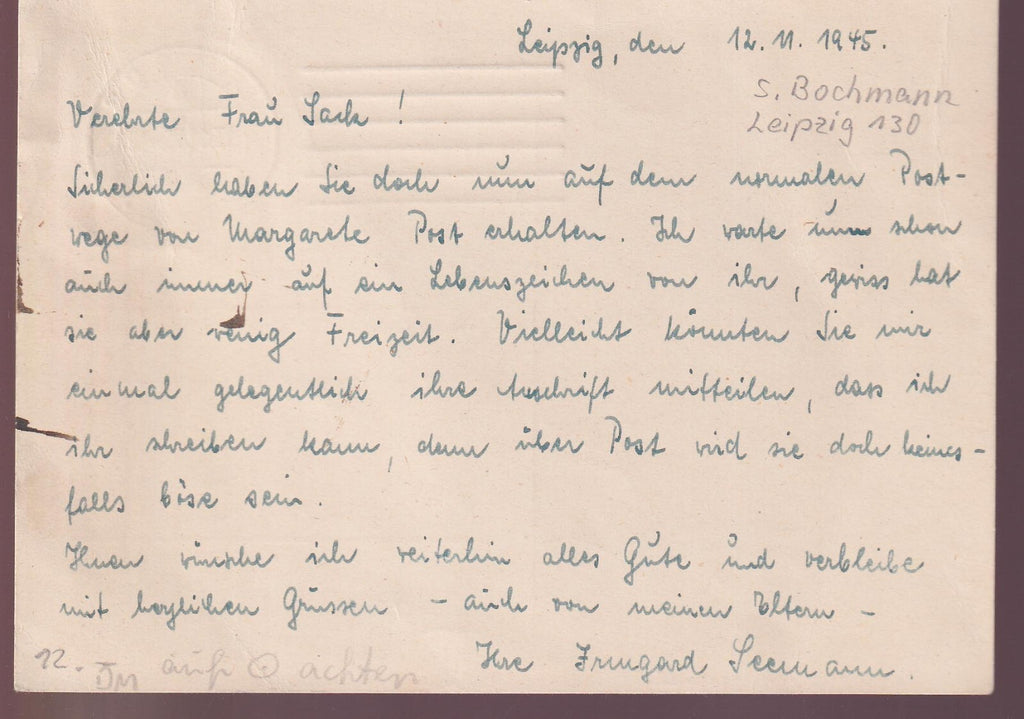 Leipzig, den 12. 11. 1945.
S. Bochmann
Leipzig 130
Verehrte Frau Sack!
Sicherlich haben Sie doch nun auf dem normalen Post-
wege von Margarete Post erhalten. Ich warte nun schon
auch immer auf ein Lebenszeichen von ihr, gewiss hat
sie aber wenig Freizeit. Vielleicht könnten Sie mir
einmal gelegentlich ihre Anschrift mitteilen, dass ich
ihr schreiben kann, denn über Post wird sie doch keines-
falls böse sein.
Ihnen wünsche ich weiterhin alles Gute und verbleibe
mit herzlichen Grüssen – auch von meinen Eltern –
Ihre Irmgard Seemann.
12. auf achten